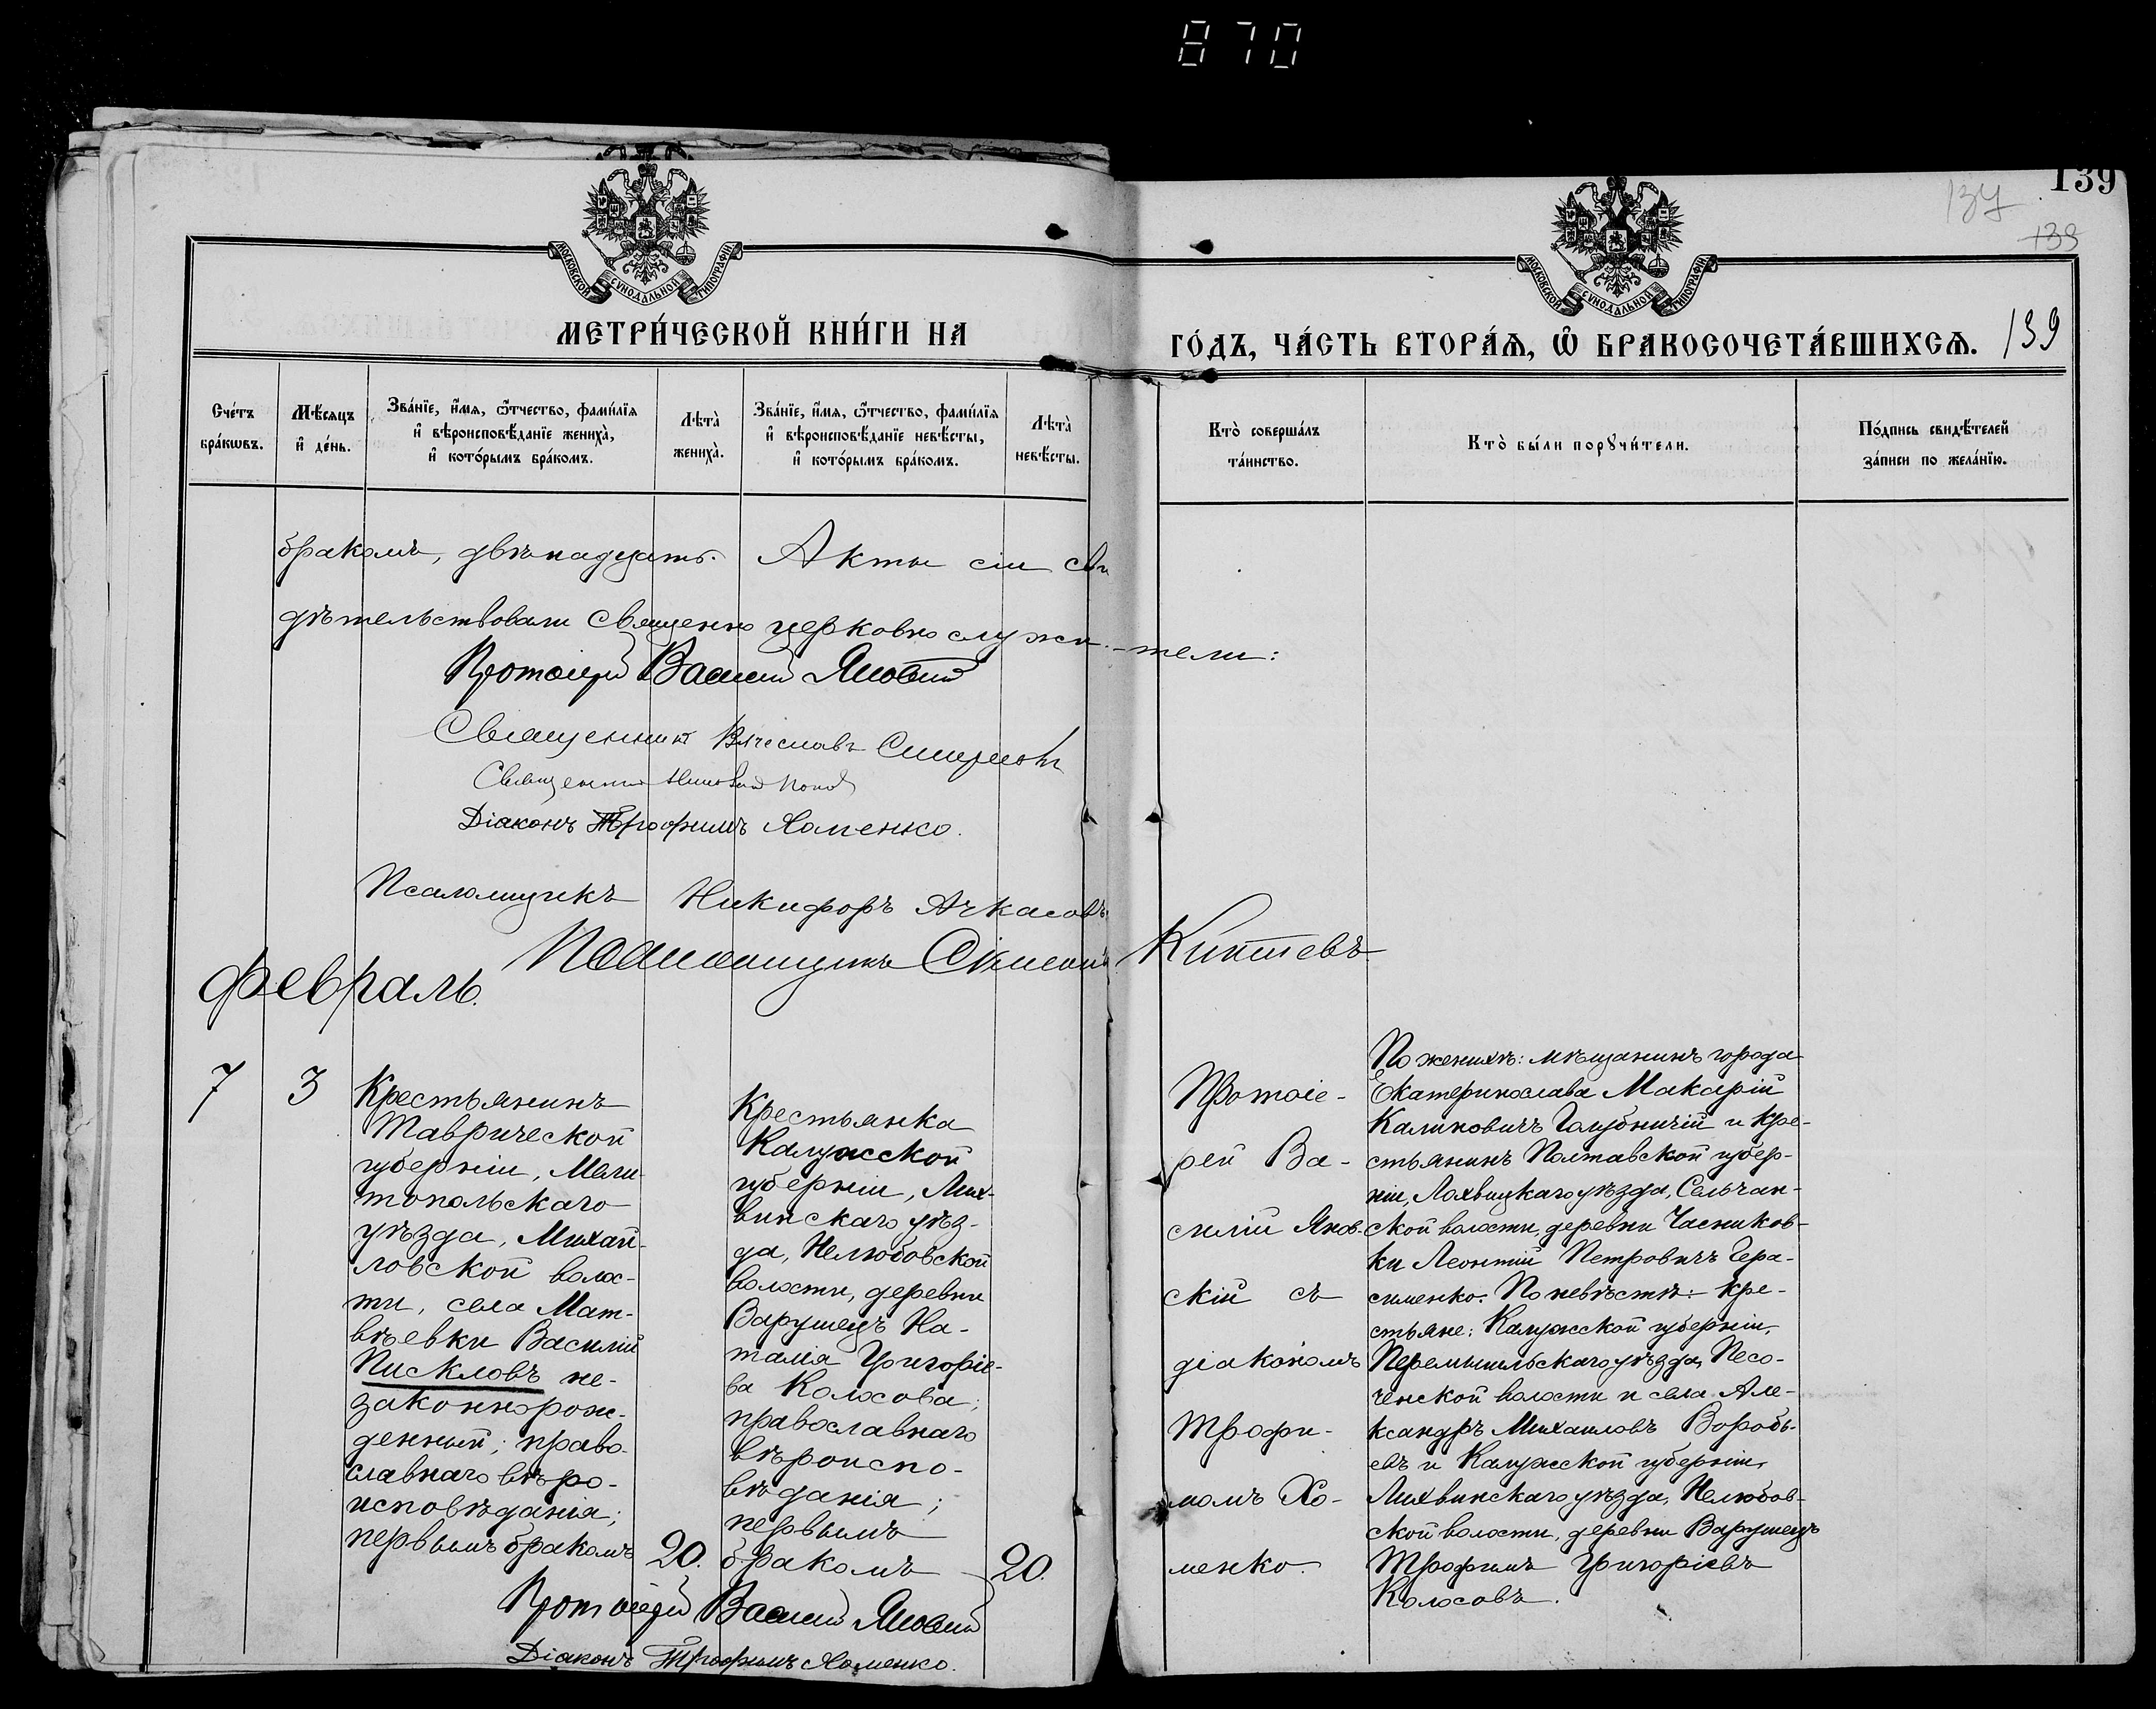 870
139
137
139
МОСКОВСКОЙ СѴНОДАЛЬНОЙ ТИПОГРАФІИ
МОСКОВСКОЙ СѴНОДАЛЬНОЙ ТИПОГРАФІИ
МЕТРИ́ЧЕСКОЙ КНИ́ГИ НА
ГО́ДЪ, ЧА́СТЬ ВТОРА́Ѧ, Ѽ БРАКОСОЧЕТА́ВШИХСѦ.
139
Сче́тъ
бра́кѡвъ.
Мѣ́сяцъ
и҆ де́нь.
Зва́нїе, и҆́мѧ, ѻ҆́тчество, фами́лїѧ
и҆ вѣроисповѣ́данїе жениха̀,
и҆ кото́рымъ бра́комъ.
Лѣта̀
жениха̀.
Зва́нїе, и҆́мѧ, ѻ҆́тчество, фами́лїѧ
и҆ вѣроисповѣ́данїе невѣ́сты,
и҆ кото́рымъ бра́комъ.
Лѣта̀
невѣ́сты.
Кто̀ соверша́лъ
та́инство.
Кто̀ бы́ли порꙋчи́тели.
По́дпись свидѣ́телей
за́писи по жела́нїю.
бракомъ, двѣнадцать. Акты сіи сви
дѣтельствовали священно церковно служи-тели:
Протоіерей Василій Яновскій
Священникъ Вячеславъ Смирновъ
Священникъ
Діаконъ Трофимъ Хоменко.
Псаломщикъ Никифоръ Ачкасовъ
Псаломщикъ Киптевъ
Февраль.
7
3
Крестьянинъ
Таврической
губерніи, Мели-
топольскаго
уѣзда, Михай-
ловской волос-
ти, села Мат-
вѣевки Василій
Пискловъ не-
законнорож-
денный; право-
славнаго вѣро-
исповѣданія;
первымъ бракомъ
20.
Крестьянка
Калужской
губерніи, Лих-
винскаго уѣз-
да, Нелюбовской
волости, деревни
Варушецъ На-
талія Григоріе-
ва Колосова;
православнаго
вѣроиспо-
вѣданія;
первымъ
бракомъ
20.
Протоіе-
рей Ва-
силій Янов-
скій съ
діакономъ
Трофи-
момъ Хо-
менко.
По женихѣ: мѣщанинъ города
Екатеринослава Макарій
Калиновичъ Голубничій и кре-
стьянинъ Полтавской губер-
ніи, Лохвицкаго уѣзда, Сенчан-
ской волости, деревни Часников-
ки Леонтій Петровичъ Гера-
сименко. По невѣстѣ: кре-
стьяне: Калужской губерніи,
Перемышльскаго уѣзда, Песо-
ченской волости и села Але-
ксандръ Михаиловъ Воробь-
евъ и Калужской губерніи,
Лихвинскаго уѣзда, Нелюбов-
ской волости, деревни Варушецъ
Трофимъ Григоріевъ
Колосовъ.
Протоіерей Василій Яновскій
Діаконъ Трофимъ Хоменко.